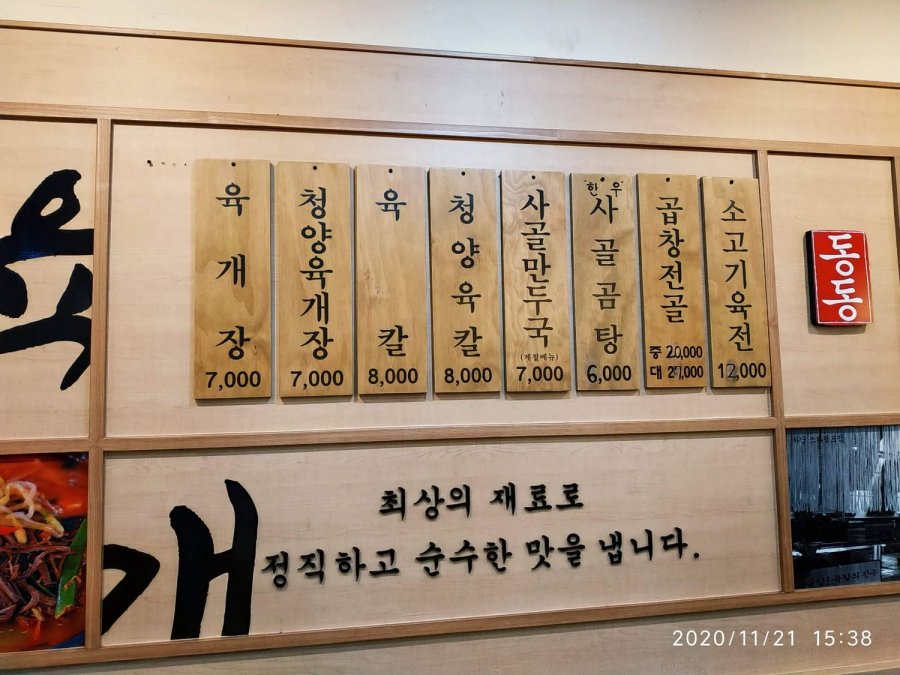 육개장
7,000
청양육개장
7,000
육칼
8,000
청양육칼
8,000
사골만두국
(계절메뉴)
7,000
"한우"
사골곰탕
6,000
곱창전골
중 20,000
대
소고기육전
12,000
동동
육
개
최상의 재료로
정직하고 순수한 맛을 냅니다.
2020/11/21 15:38